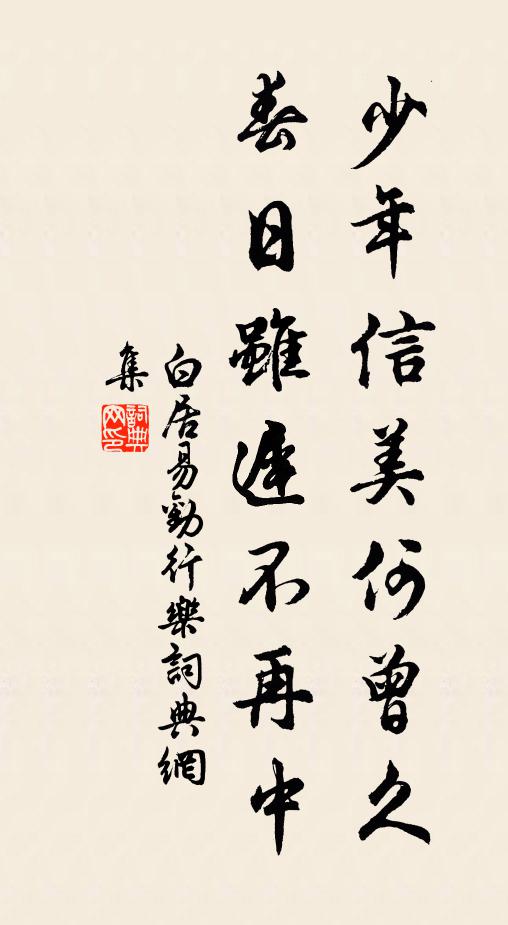 少年信美何曾久
春日雖遲不再中
白居易勸行樂詞典網
集
詞典網印